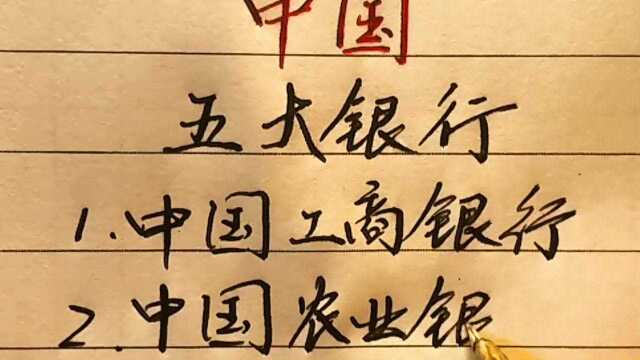 中国
五大银行
1.中国工商银行
2.中国农业银